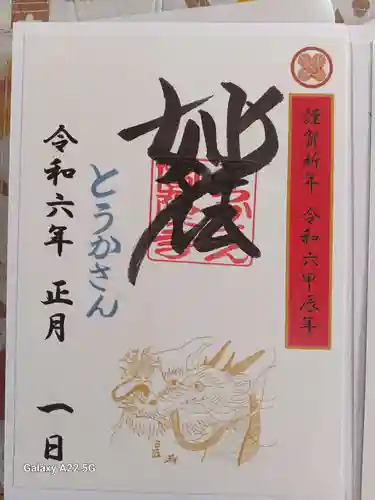 謹賀新年 令和六甲辰年
妙法
とうかさん
令和六年 正月 一日
Galaxy A22 5G